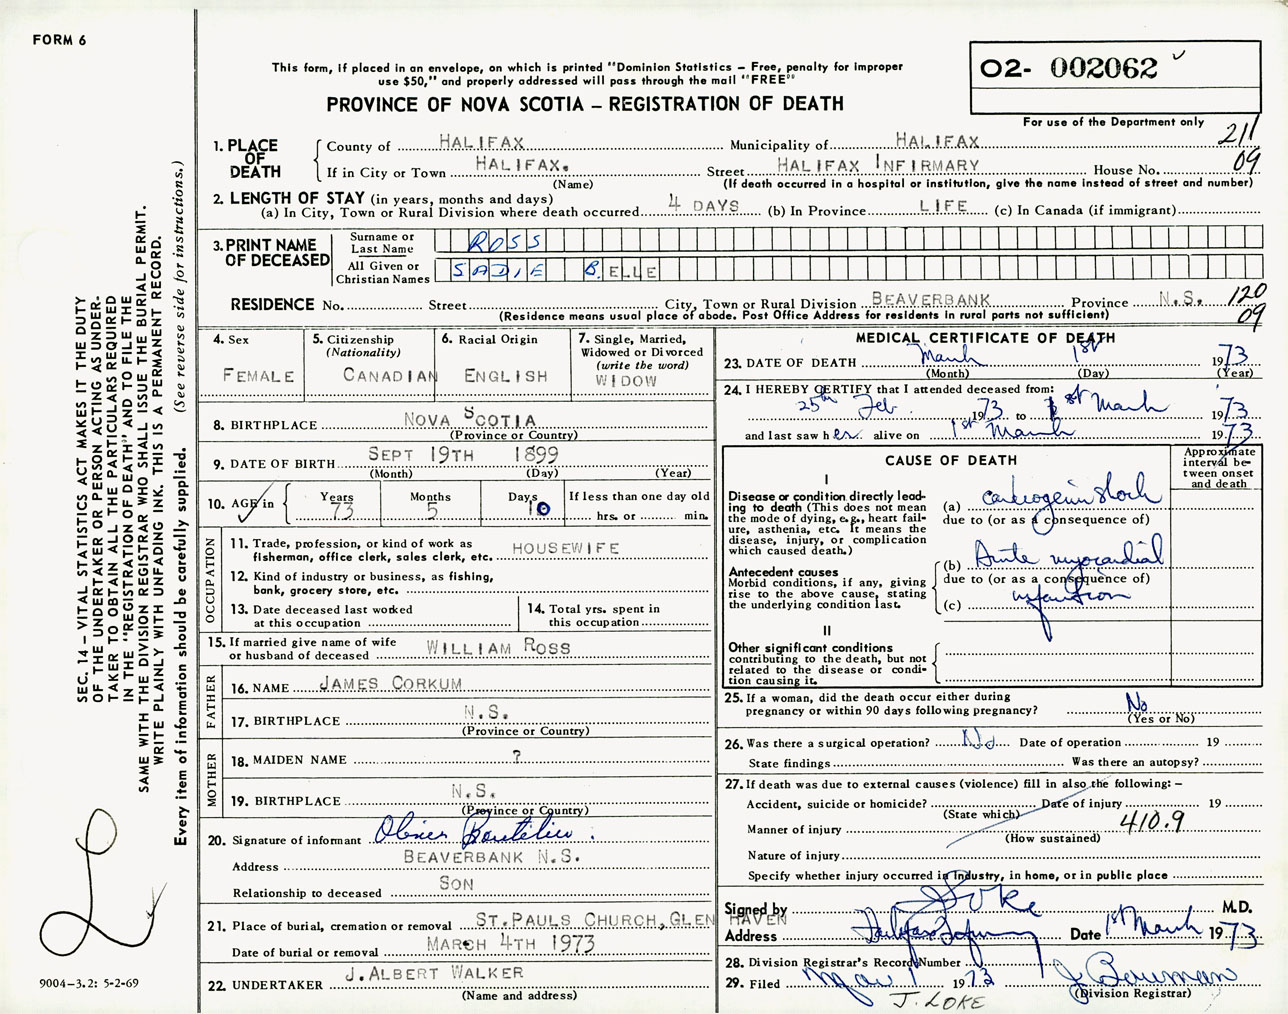 FORM 6
This form, if placed in an envelope, on which is printed "Dominion Statistics – Free, penalty for improper
use $50," and properly addressed will pass through the mail "FREE"
PROVINCE OF NOVA SCOTIA – REGISTRATION OF DEATH
O2- 002062
For use of the Department only
211
09
1. PLACE OF DEATH
County of HALIFAX Municipality of HALIFAX
If in City or Town HALIFAX. Street HALIFAX INFIRMARY House No.
(Name) (If death occurred in a hospital or institution, give the name instead of street and number)
2. LENGTH OF STAY (in years, months and days)
(a) In City, Town or Rural Division where death occurred 4 DAYS (b) In Province LIFE (c) In Canada (if immigrant)
3. PRINT NAME OF DECEASED
Surname or Last Name ROSS
All Given or Christian Names SADIE B.ELLE
RESIDENCE No. Street City, Town or Rural Division BEAVERBANK Province N.S. 120
09
(Residence means usual place of abode. Post Office Address for residents in rural parts not sufficient)
4. Sex
FEMALE
5. Citizenship
(Nationality)
CANADIAN
6. Racial Origin
ENGLISH
7. Single, Married,
Widowed or Divorced
(write the word)
WIDOW
8. BIRTHPLACE NOVA SCOTIA
(Province or Country)
9. DATE OF BIRTH SEPT 19TH 1899
(Month) (Day) (Year)
10. AGE in Years 73 Months 5 Days 10 If less than one day old
hrs. or min.
OCCUPATION
11. Trade, profession, or kind of work as
fisherman, office clerk, sales clerk, etc. HOUSEWIFE
12. Kind of industry or business, as fishing,
bank, grocery store, etc.
13. Date deceased last worked
at this occupation
14. Total yrs. spent in
this occupation
15. If married give name of wife
or husband of deceased WILLIAM ROSS
FATHER
16. NAME JAMES CORKUM
17. BIRTHPLACE N.S.
(Province or Country)
MOTHER
18. MAIDEN NAME ?
19. BIRTHPLACE N.S.
(Province or Country)
20. Signature of informant
Address BEAVERBANK N.S.
Relationship to deceased SON
21. Place of burial, cremation or removal ST.PAULS CHURCH,GLEN HAVEN
Date of burial or removal MARCH 4TH 1973
22. UNDERTAKER J.ALBERT WALKER
(Name and address)
MEDICAL CERTIFICATE OF DEATH
23. DATE OF DEATH March 1st 1973
(Month) (Day) (Year)
24. I HEREBY CERTIFY that I attended deceased from:
25th Feb. 1973 to 1st March 1973
and last saw her alive on 1st March 1973
CAUSE OF DEATH
Approximate
interval be-
tween onset
and death
I
Disease or condition directly lead-
ing to death (This does not mean
the mode of dying, e.g., heart fail-
ure, asthenia, etc. It means the
disease, injury, or complication
which caused death.)
(a) cardiogenic shock
due to (or as a consequence of)
Antecedent causes
Morbid conditions, if any, giving
rise to the above cause, stating
the underlying condition last.
(b) Acute myocardial
due to (or as a consequence of)
(c) infarction
II
Other significant conditions
contributing to the death, but not
related to the disease or condi-
tion causing it.
25. If a woman, did the death occur either during
pregnancy or within 90 days following pregnancy? No
(Yes or No)
26. Was there a surgical operation? No Date of operation 19
State findings Was there an autopsy?
27. If death was due to external causes (violence) fill in also the following: –
Accident, suicide or homicide? Date of injury 19
(State which)
Manner of injury 410.9
(How sustained)
Nature of injury
Specify whether injury occurred in Industry, in home, or in public place
Signed by J Loke M.D.
Address Halifax Infirmary Date 1st March 1973
28. Division Registrar's Record Number
29. Filed Mar 1 1973 J Bowman
(Division Registrar)
J. LOKE
SEC. 14 – VITAL STATISTICS ACT MAKES IT THE DUTY
OF THE UNDERTAKER OR PERSON ACTING AS UNDER-
TAKER TO OBTAIN ALL THE PARTICULARS REQUIRED
IN THE "REGISTRATION OF DEATH" AND TO FILE THE
SAME WITH THE DIVISION REGISTRAR WHO SHALL ISSUE THE BURIAL PERMIT.
WRITE PLAINLY WITH UNFADING INK. THIS IS A PERMANENT RECORD.
Every item of information should be carefully supplied. (See reverse side for instructions.)
9004–3.2: 5-2-69